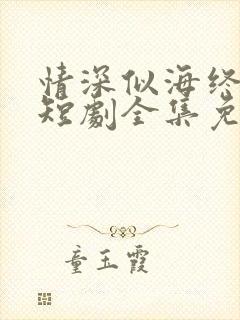 情深似海终
短劇全集免
童玉霞